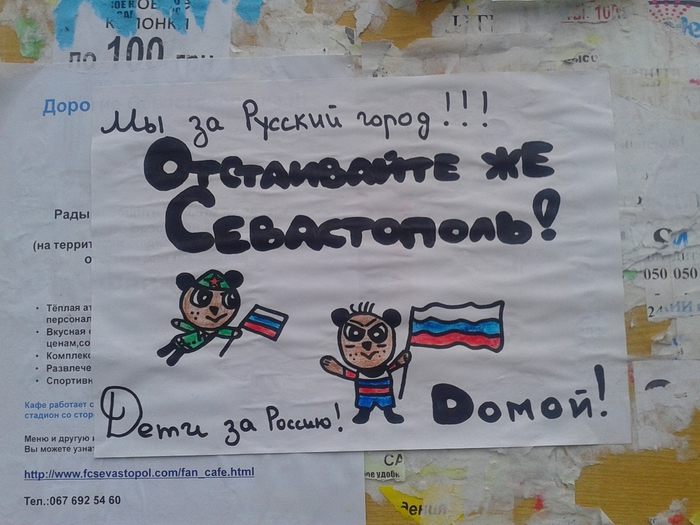 КОЛОНКИ
по 100 грн
Доро
Мы за Русский город!!!
Отстаивайте же
Севастополь!
Рады
(на террит
Тёплая ат
персонал
Вкусная
ценам,со
Комплекс
Развлече
Спортивн
Кафе работает с
стадион со стор
Меню и другую и
Вы можете узнат
http://www.fcsevastopol.com/fan_cafe.html
Тел.:067 692 54 60
Дети за Россию!
Домой!
050 050